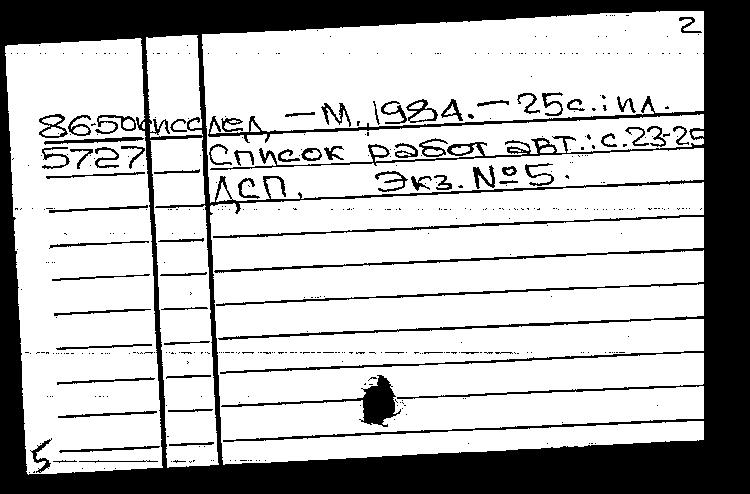 2
86-50к исслед, — М., 1984. — 25с.: ил.
5727 Список работ авт.: с.23-25
ДСП. Экз. №5.
5